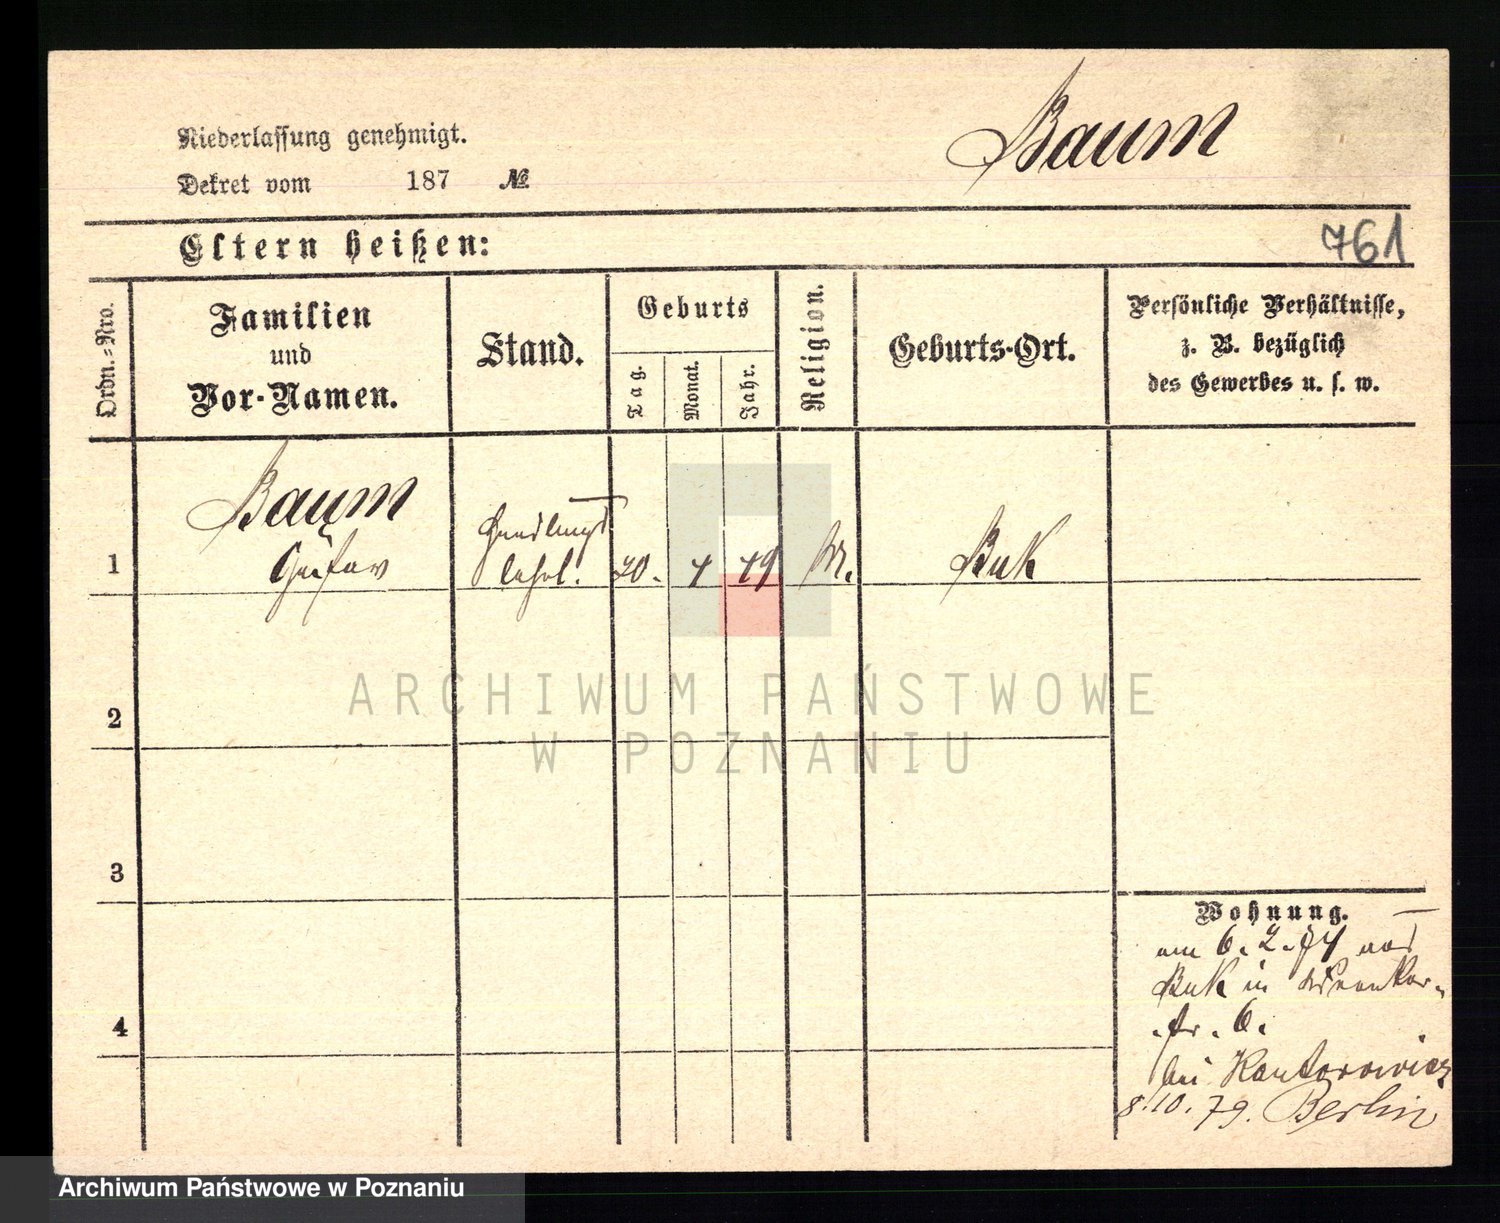 Baum
Niederlassung genehmigt.
Dekret vom 187 №
761
Eltern heißen:
Ordn.-Nro.
Familien
und
Vor-Namen.
Stand.
Geburts
Tag.
Monat.
Jahr.
Religion.
Geburts-Ort.
Persönliche Verhältnisse,
z. B. bezüglich
des Gewerbes u. s. w.
Baum
Gustav
Handlungs
lehrl.
1
20.
Buk
2
3
4
Wohnung.
am 6. 2. 74 aus
Buk in
str. 6.
bei Kantorowicz
8.10.79. Berlin
ARCHIWUM PAŃSTWOWE
W POZNANIU
Archiwum Państwowe w Poznaniu